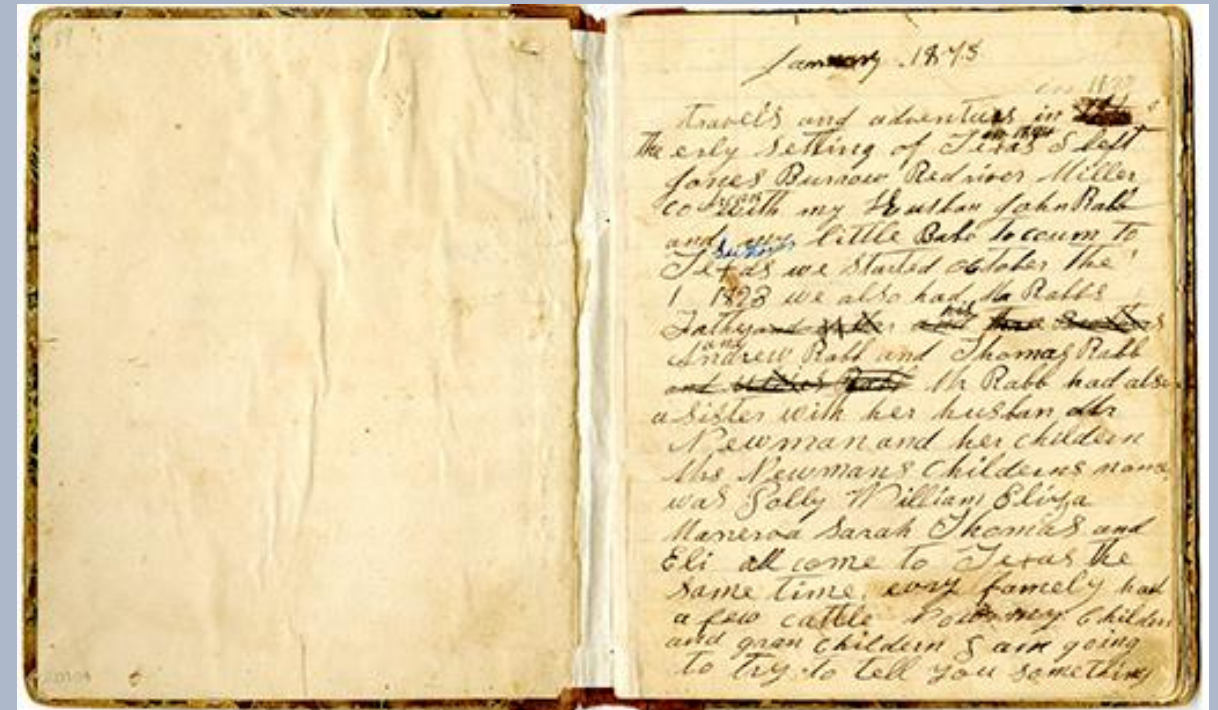 January 1875
in 1822
travels and adventures in
the erly setling of Texas I left
Jones Burrow Redriver Miller
co with my Husban John Rabb
and my little Babe to coum to
Texas we started october the
1 1823 we also had Mr Rabbs
Father his
Andrew Rabb and Thomas Rabb
and Rabb Mr Rabb had also
a sister with her husban Mr
Newman and her childern
Mrs Newmans Childerns name
was Polly William Eliza
Manerva Sarah Thomas and
Eli all come to Texas the
same time. evry famely had
a few cattle Now my Childern
and gran childern I am going
to try to tell you something